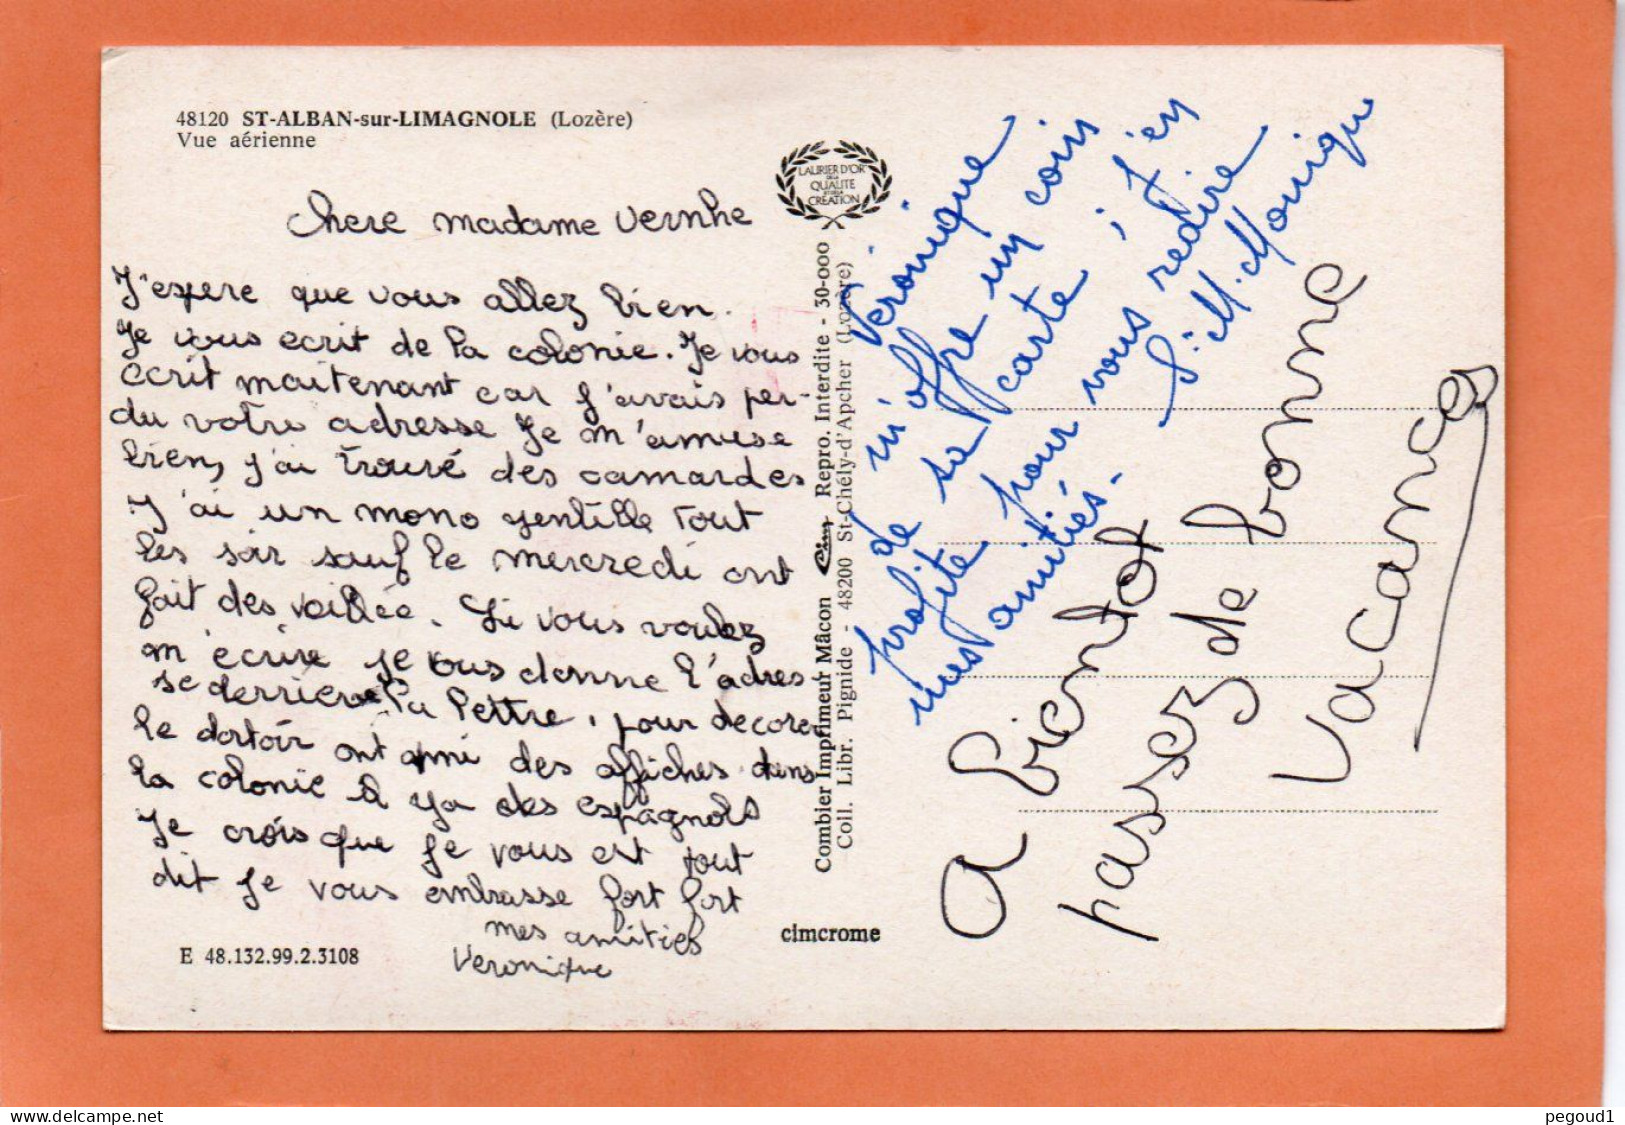 48120 ST-ALBAN-sur-LIMAGNOLE (Lozère)
Vue aérienne
chere madame vernhe
J'espere que vous allez bien.
Je vous ecrit de la colonie. Je vous
ecrit maitenant car j'avais per-
du votre adresse Je m'amuse
bien, j'ai trouré des camardes
J'ai un mono gentille tout
les soir sauf le mercredi ont
fait des veillée. Si vous voulez
m'écrire je vous donne l'adres
se derriere la lettre, pour decorer
le dortoir ont a mi des affiches dans
la colonie il ya des espagnols
Je crois que je vous est tout
dit je vous embrasse fort fort
mes amities
Veronique
E 48.132.99.2.3108
LAURIER D'OR
DE LA
QUALITE
ET DE LA
CREATION
Combier Imprimeur Mâcon Cim Repro. Interdite - 30-000
Coll. Libr. Pignide - 48200 St-Chély-d'Apcher (Lozère)
cimcrome
Véronique
m'offre un coin
de sa carte ; j'en
profite pour vous redire
mes amitiés.
S. M. Monique
a bientot
passez de bonne
vacances
pegoud1